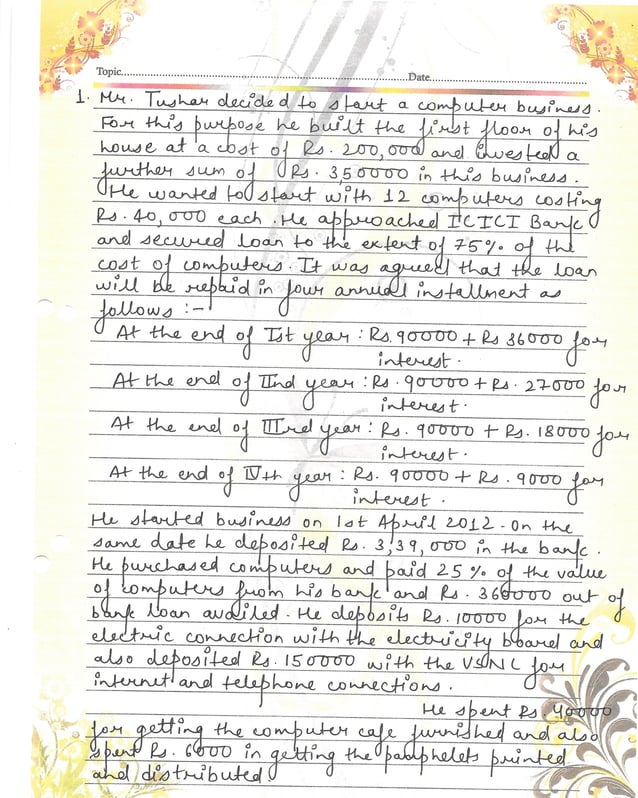 Topic..........Date..........
1. Mr. Tushar decided to start a computer business.
For this purpose he built the first floor of his
house at a cost of Rs. 200,000 and invested a
further sum of Rs. 350000 in this business.
He wanted to start with 12 computers costing
Rs. 40,000 each. He approached ICICI Bank
and secured loan to the extent of 75% of the
cost of computers. It was agreed that the loan
will be repaid in four annual installment as
follows :-
At the end of Ist year : Rs. 90000 + Rs 36000 for
interest.
At the end of IInd year : Rs. 90000 + Rs. 27000 for
interest.
At the end of IIIrd year : Rs. 90000 + Rs. 18000 for
interest.
At the end of IVth year : Rs. 90000 + Rs. 9000 for
interest.
He started business on 1st April 2012. On the
same date he deposited Rs. 3,39,000 in the bank.
He purchased computers and paid 25% of the value
of computers from his bank and Rs. 360000 out of
bank loan availed. He deposits Rs. 10000 for the
electric connection with the electricity board and
also deposited Rs. 150000 with the VSNL for
internet and telephone connections.
He spent Rs. 40000
for getting the computer cafe furnished and also
spent Rs. 6000 in getting the pamphelets printed
and distributed.